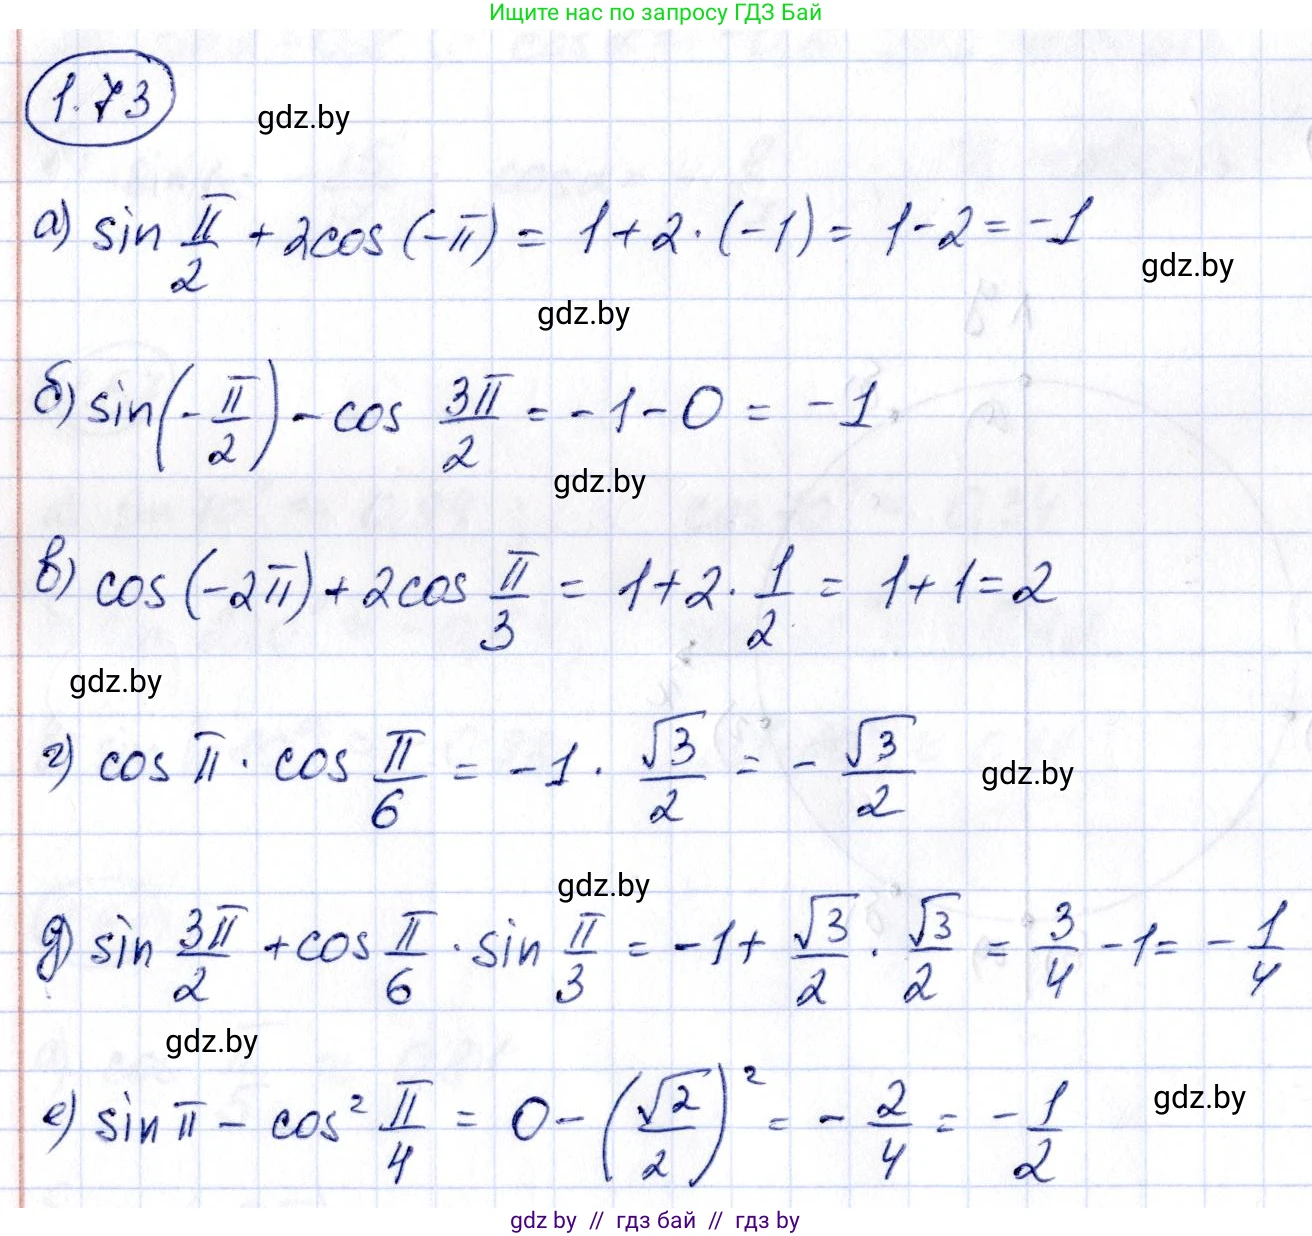 Ищите нас по запросу ГДЗ Бай
1.73
gdz.by
а) sin π/2 + 2cos (-π) = 1 + 2 · (-1) = 1 - 2 = -1
gdz.by
gdz.by
б) sin(-π/2) - cos 3π/2 = -1 - 0 = -1
gdz.by
в) cos (-2π) + 2cos π/3 = 1 + 2 · 1/2 = 1 + 1 = 2
gdz.by
г) cos π · cos π/6 = -1 · √3/2 = - √3/2
gdz.by
gdz.by
д) sin 3π/2 + cos π/6 · sin π/3 = -1 + √3/2 · √3/2 = 3/4 - 1 = - 1/4
gdz.by
е) sin π - cos² π/4 = 0 - (√2/2)² = - 2/4 = - 1/2
gdz.by
gdz by // гдз бай // гдз by